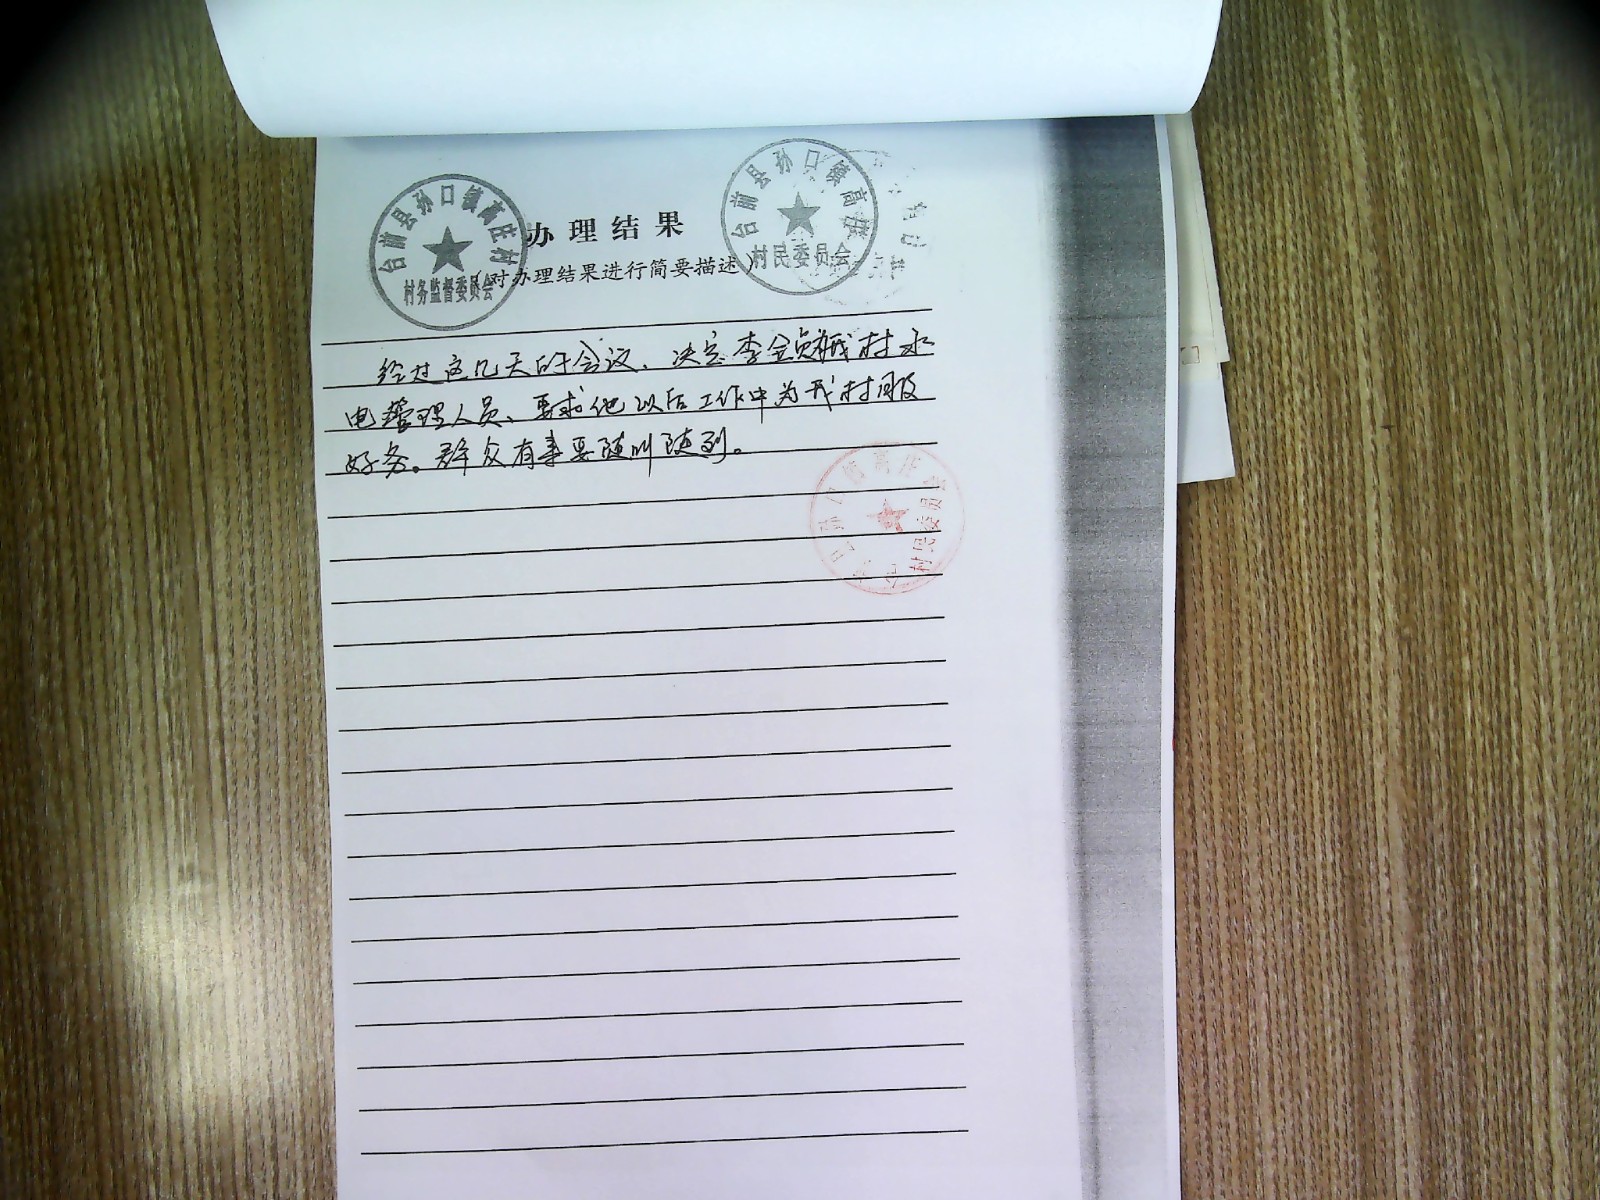 台前县孙口镇高庄村
村务监督委员会
台前县孙口镇高庄
村民委员会
办理结果
（对办理结果进行简要描述）
经过这几天的会议、决定李金贞我村水
电管理人员、要求他以后工作中为我村服
好务。群众有事要随叫随到。
孙口镇高庄
村民委员会